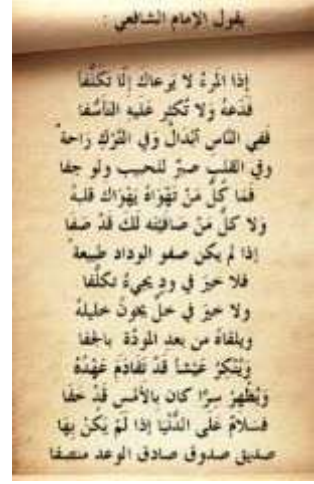 يقول الإمام الشافعي :
إذا المرءُ لا يرعاك إلّا تكلّفا
فدعهُ ولا تُكثر عليه التأسّفا
ففي النّاس أبدالٌ وفي التّرك راحة
وفي القلب صبرٌ للحبيب ولو جفا
فما كلُّ من تهواهُ يهواك قلبهُ
ولا كلُّ من صافيته لك قد صفا
إذا لم يكن صفو الوداد طبيعة
فلا خير في ودٍ يجيءُ تكلّفا
ولا خير في خلٍّ يخونُ خليلهُ
ويلقاهُ من بعد المودّة بالجفا
وينكرُ عيشاً قد تقادم عهدُهُ
ويظهرُ سرّاً كان بالأمس قد خفا
فسلامٌ على الدّنيا إذا لم يكن بها
صديق صدوق صادق الوعد منصفا